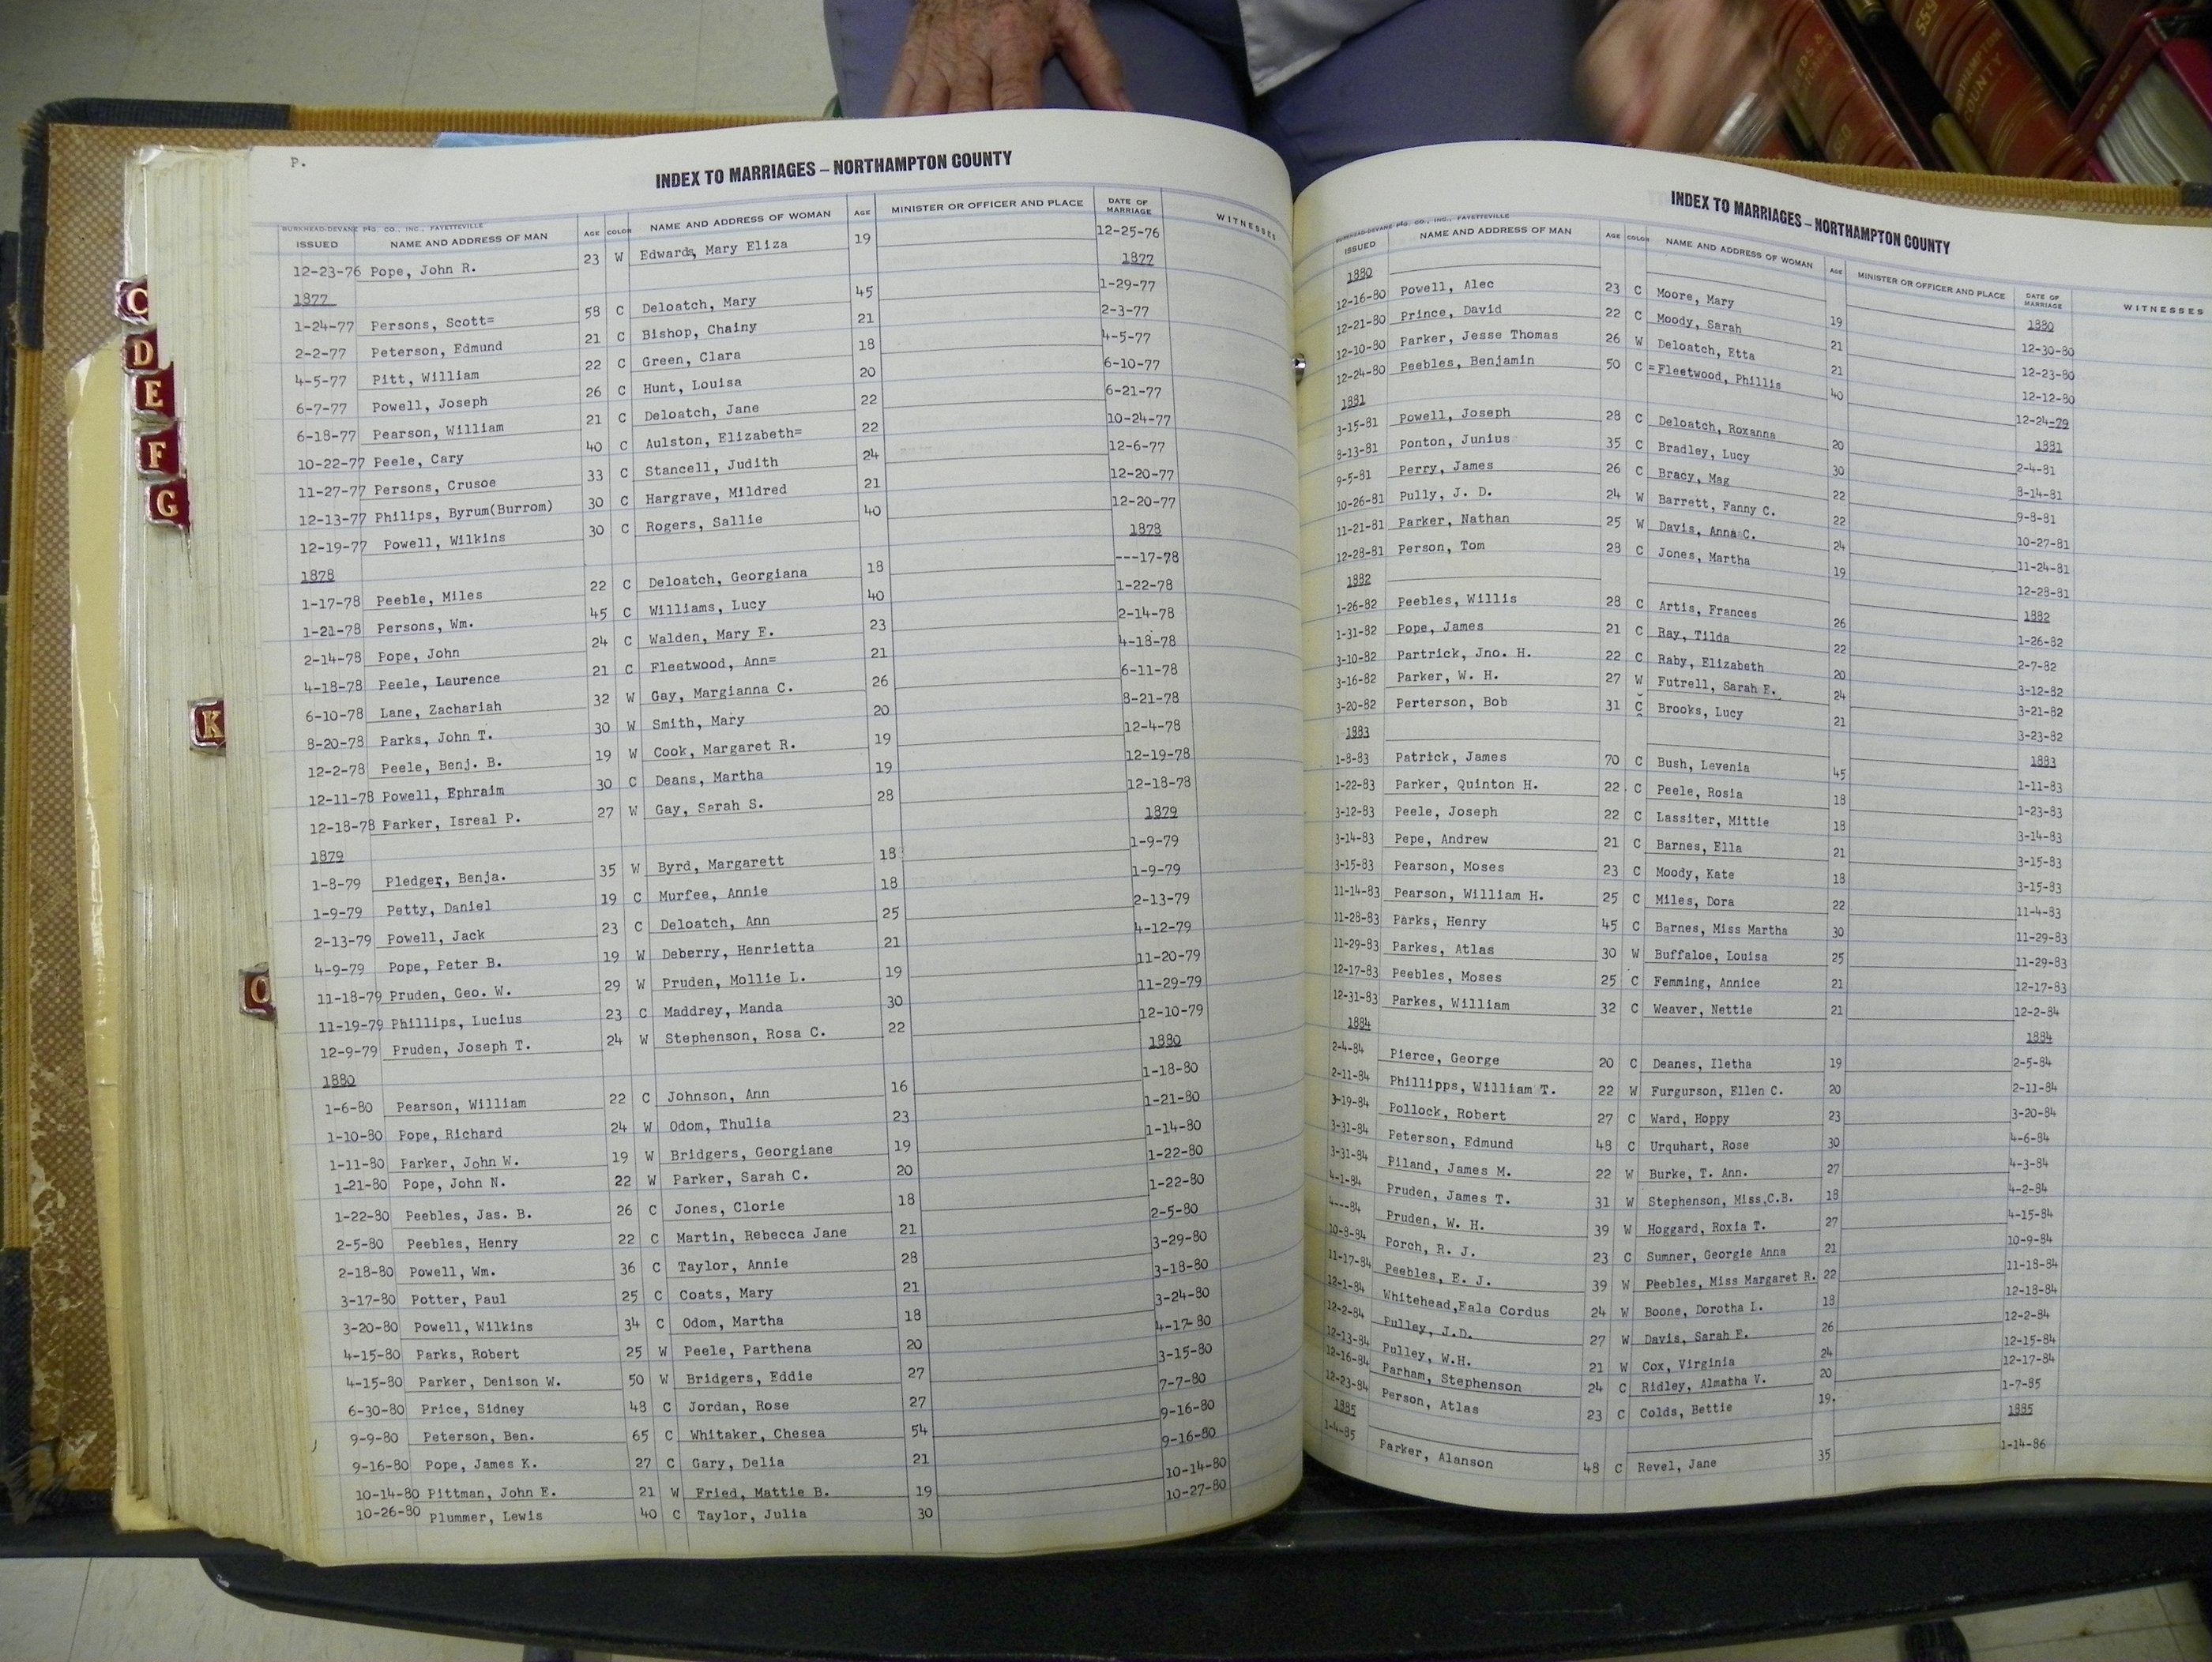 P.
INDEX TO MARRIAGES – NORTHAMPTON COUNTY
BURKHEAD-DEVANE P'tg. CO., INC., FAYETTEVILLE
ISSUED NAME AND ADDRESS OF MAN AGE COLOR NAME AND ADDRESS OF WOMAN AGE MINISTER OR OFFICER AND PLACE DATE OF MARRIAGE WITNESSES
12-23-76 Pope, John R. 23 W Edwards, Mary Eliza 19 12-25-76
1877 1877
1-24-77 Persons, Scott= 58 C Deloatch, Mary 45 1-29-77
2-2-77 Peterson, Edmund 21 C Bishop, Chainy 21 2-3-77
4-5-77 Pitt, William 22 C Green, Clara 18 4-5-77
6-7-77 Powell, Joseph 26 C Hunt, Louisa 20 6-10-77
6-18-77 Pearson, William 21 C Deloatch, Jane 22 6-21-77
10-22-77 Peele, Cary 40 C Aulston, Elizabeth= 22 10-24-77
11-27-77 Persons, Crusoe 33 C Stancell, Judith 24 12-6-77
12-13-77 Philips, Byrum(Burrom) 30 C Hargrave, Mildred 21 12-20-77
12-19-77 Powell, Wilkins 30 C Rogers, Sallie 40 12-20-77
1878 1878
1-17-78 Peeble, Miles 22 C Deloatch, Georgiana 18 ---17-78
1-21-78 Persons, Wm. 45 C Williams, Lucy 40 1-22-78
2-14-78 Pope, John 24 C Walden, Mary E. 23 2-14-78
4-18-78 Peele, Laurence 21 C Fleetwood, Ann= 21 4-18-78
6-10-78 Lane, Zachariah 32 W Gay, Margianna C. 26 6-11-78
8-20-78 Parks, John T. 30 W Smith, Mary 20 8-21-78
12-2-78 Peele, Benj. B. 19 W Cook, Margaret R. 19 12-4-78
12-11-78 Powell, Ephraim 30 C Deans, Martha 19 12-19-78
12-18-78 Parker, Isreal P. 27 W Gay, Sarah S. 28 12-18-78
1879 1879
1-8-79 Pledger, Benja. 35 W Byrd, Margarett 18 1-9-79
1-9-79 Petty, Daniel 19 C Murfee, Annie 18 1-9-79
2-13-79 Powell, Jack 23 C Deloatch, Ann 25 2-13-79
4-9-79 Pope, Peter B. 19 W Deberry, Henrietta 21 4-12-79
11-18-79 Pruden, Geo. W. 29 W Pruden, Mollie L. 19 11-20-79
11-19-79 Phillips, Lucius 23 C Maddrey, Manda 30 11-29-79
12-9-79 Pruden, Joseph T. 24 W Stephenson, Rosa C. 22 12-10-79
1880 1880
1-6-80 Pearson, William 22 C Johnson, Ann 16 1-18-80
1-10-80 Pope, Richard 24 W Odom, Thulia 23 1-21-80
1-11-80 Parker, John W. 19 W Bridgers, Georgiane 19 1-14-80
1-21-80 Pope, John N. 22 W Parker, Sarah C. 20 1-22-80
1-22-80 Peebles, Jas. B. 26 C Jones, Clorie 18 1-22-80
2-5-80 Peebles, Henry 22 C Martin, Rebecca Jane 21 2-5-80
2-18-80 Powell, Wm. 36 C Taylor, Annie 28 3-29-80
3-17-80 Potter, Paul 25 C Coats, Mary 21 3-18-80
3-20-80 Powell, Wilkins 34 C Odom, Martha 18 3-24-80
4-15-80 Parks, Robert 25 W Peele, Parthena 20 4-17-80
4-15-80 Parker, Denison W. 50 W Bridgers, Eddie 27 3-15-80
6-30-80 Price, Sidney 48 C Jordan, Rose 27 7-7-80
9-9-80 Peterson, Ben. 65 C Whitaker, Chesea 54 9-16-80
9-16-80 Pope, James K. 27 C Gary, Delia 21 9-16-80
10-14-80 Pittman, John E. 21 W Fried, Mattie B. 19 10-14-80
10-26-80 Plummer, Lewis 40 C Taylor, Julia 30 10-27-80
INDEX TO MARRIAGES – NORTHAMPTON COUNTY
BURKHEAD-DEVANE P'tg. CO., INC., FAYETTEVILLE
ISSUED NAME AND ADDRESS OF MAN AGE COLOR NAME AND ADDRESS OF WOMAN AGE MINISTER OR OFFICER AND PLACE DATE OF MARRIAGE WITNESSES
1880 1880
12-16-80 Powell, Alec 23 C Moore, Mary 19 12-30-80
12-21-80 Prince, David 22 C Moody, Sarah 21 12-23-80
12-10-80 Parker, Jesse Thomas 26 W Deloatch, Etta 21 12-12-80
12-24-80 Peebles, Benjamin 50 C =Fleetwood, Phillis 40 12-24-79
1881 1881
3-15-81 Powell, Joseph 28 C Deloatch, Roxanna 20 2-4-81
8-13-81 Ponton, Junius 35 C Bradley, Lucy 30 8-14-81
9-5-81 Perry, James 26 C Bracy, Mag 22 9-8-81
10-26-81 Pully, J. D. 24 W Barrett, Fanny C. 22 10-27-81
11-21-81 Parker, Nathan 25 W Davis, Anna C. 24 11-24-81
12-28-81 Person, Tom 28 C Jones, Martha 19 12-28-81
1882 1882
1-26-82 Peebles, Willis 28 C Artis, Frances 26 1-26-82
1-31-82 Pope, James 21 C Ray, Tilda 22 2-7-82
3-10-82 Partrick, Jno. H. 22 C Raby, Elizabeth 20 3-12-82
3-16-82 Parker, W. H. 27 W Futrell, Sarah E. 24 3-21-82
3-20-82 Perterson, Bob 31 C Brooks, Lucy 21 3-23-82
1883 1883
1-8-83 Patrick, James 70 C Bush, Levenia 45 1-11-83
1-22-83 Parker, Quinton H. 22 C Peele, Rosia 18 1-23-83
3-12-83 Peele, Joseph 22 C Lassiter, Mittie 18 3-14-83
3-14-83 Pepe, Andrew 21 C Barnes, Ella 21 3-15-83
3-15-83 Pearson, Moses 23 C Moody, Kate 18 3-15-83
11-14-83 Pearson, William H. 25 C Miles, Dora 22 11-4-83
11-28-83 Parks, Henry 45 C Barnes, Miss Martha 30 11-29-83
11-29-83 Parkes, Atlas 30 W Buffaloe, Louisa 25 11-29-83
12-17-83 Peebles, Moses 25 C Femming, Annice 21 12-17-83
12-31-83 Parkes, William 32 C Weaver, Nettie 21 12-2-84
1884 1884
2-4-84 Pierce, George 20 C Deanes, Iletha 19 2-5-84
2-11-84 Phillipps, William T. 22 W Furgurson, Ellen C. 20 2-11-84
3-19-84 Pollock, Robert 27 C Ward, Hoppy 23 3-20-84
3-31-84 Peterson, Edmund 48 C Urquhart, Rose 30 4-6-84
3-31-84 Piland, James M. 22 W Burke, T. Ann. 27 4-3-84
4-1-84 Pruden, James T. 31 W Stephenson, Miss,C.B. 18 4-2-84
4---84 Pruden, W. H. 39 W Hoggard, Roxia T. 27 4-15-84
10-8-84 Porch, R. J. 23 C Sumner, Georgie Anna 21 10-9-84
11-17-84 Peebles, E. J. 39 W Peebles, Miss Margaret R. 22 11-18-84
12-1-84 Whitehead,Eala Cordus 24 W Boone, Dorotha L. 18 12-18-84
12-2-84 Pulley, J.D. 27 W Davis, Sarah E. 26 12-2-84
12-13-84 Pulley, W.H. 21 W Cox, Virginia 24 12-15-84
12-16-84 Parham, Stephenson 24 C Ridley, Almatha V. 20 12-17-84
12-23-84 Person, Atlas 23 C Colds, Bettie 19. 1-7-85
1885 1885
1-4-85 Parker, Alanson 48 C Revel, Jane 35 1-14-86
C
D
E
F
G
K
559
COUNTY